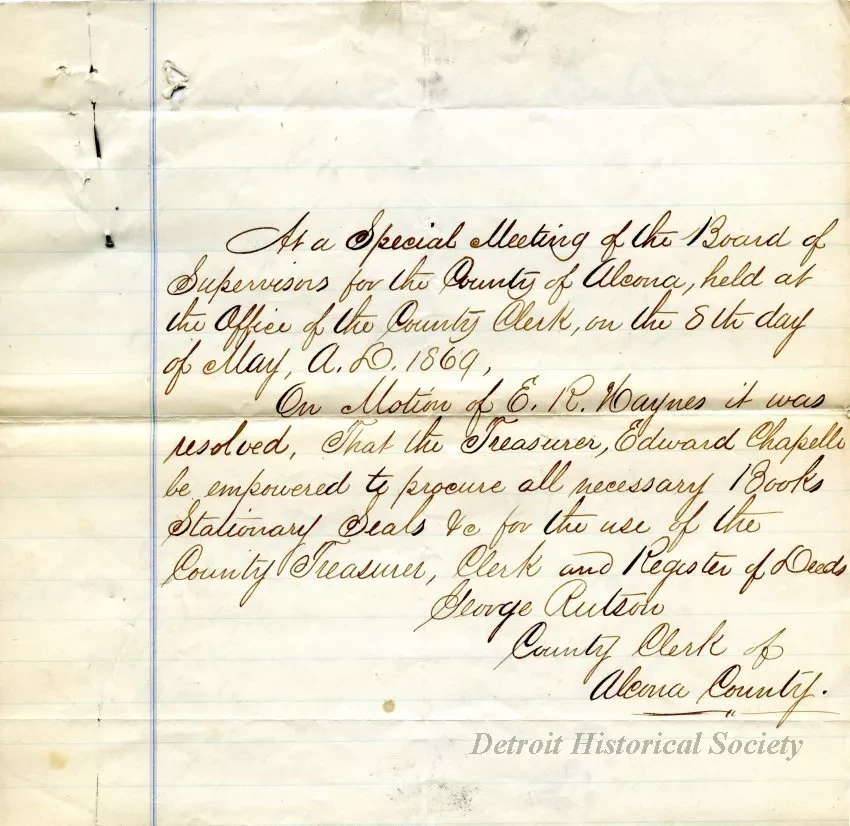 At a Special Meeting of the Board of
Supervisors for the County of Alcona, held at
the Office of the County Clerk, on the 8th day
of May, A. D. 1869,
On Motion of E. R. Haynes it was
resolved, That the Treasurer, Edward Chapelle
be empowered to procure all necessary Books
Stationary Seals &c for the use of the
County Treasurer, Clerk and Register of Deeds
George Rutson
County Clerk of
Alcona County.
Detroit Historical Society